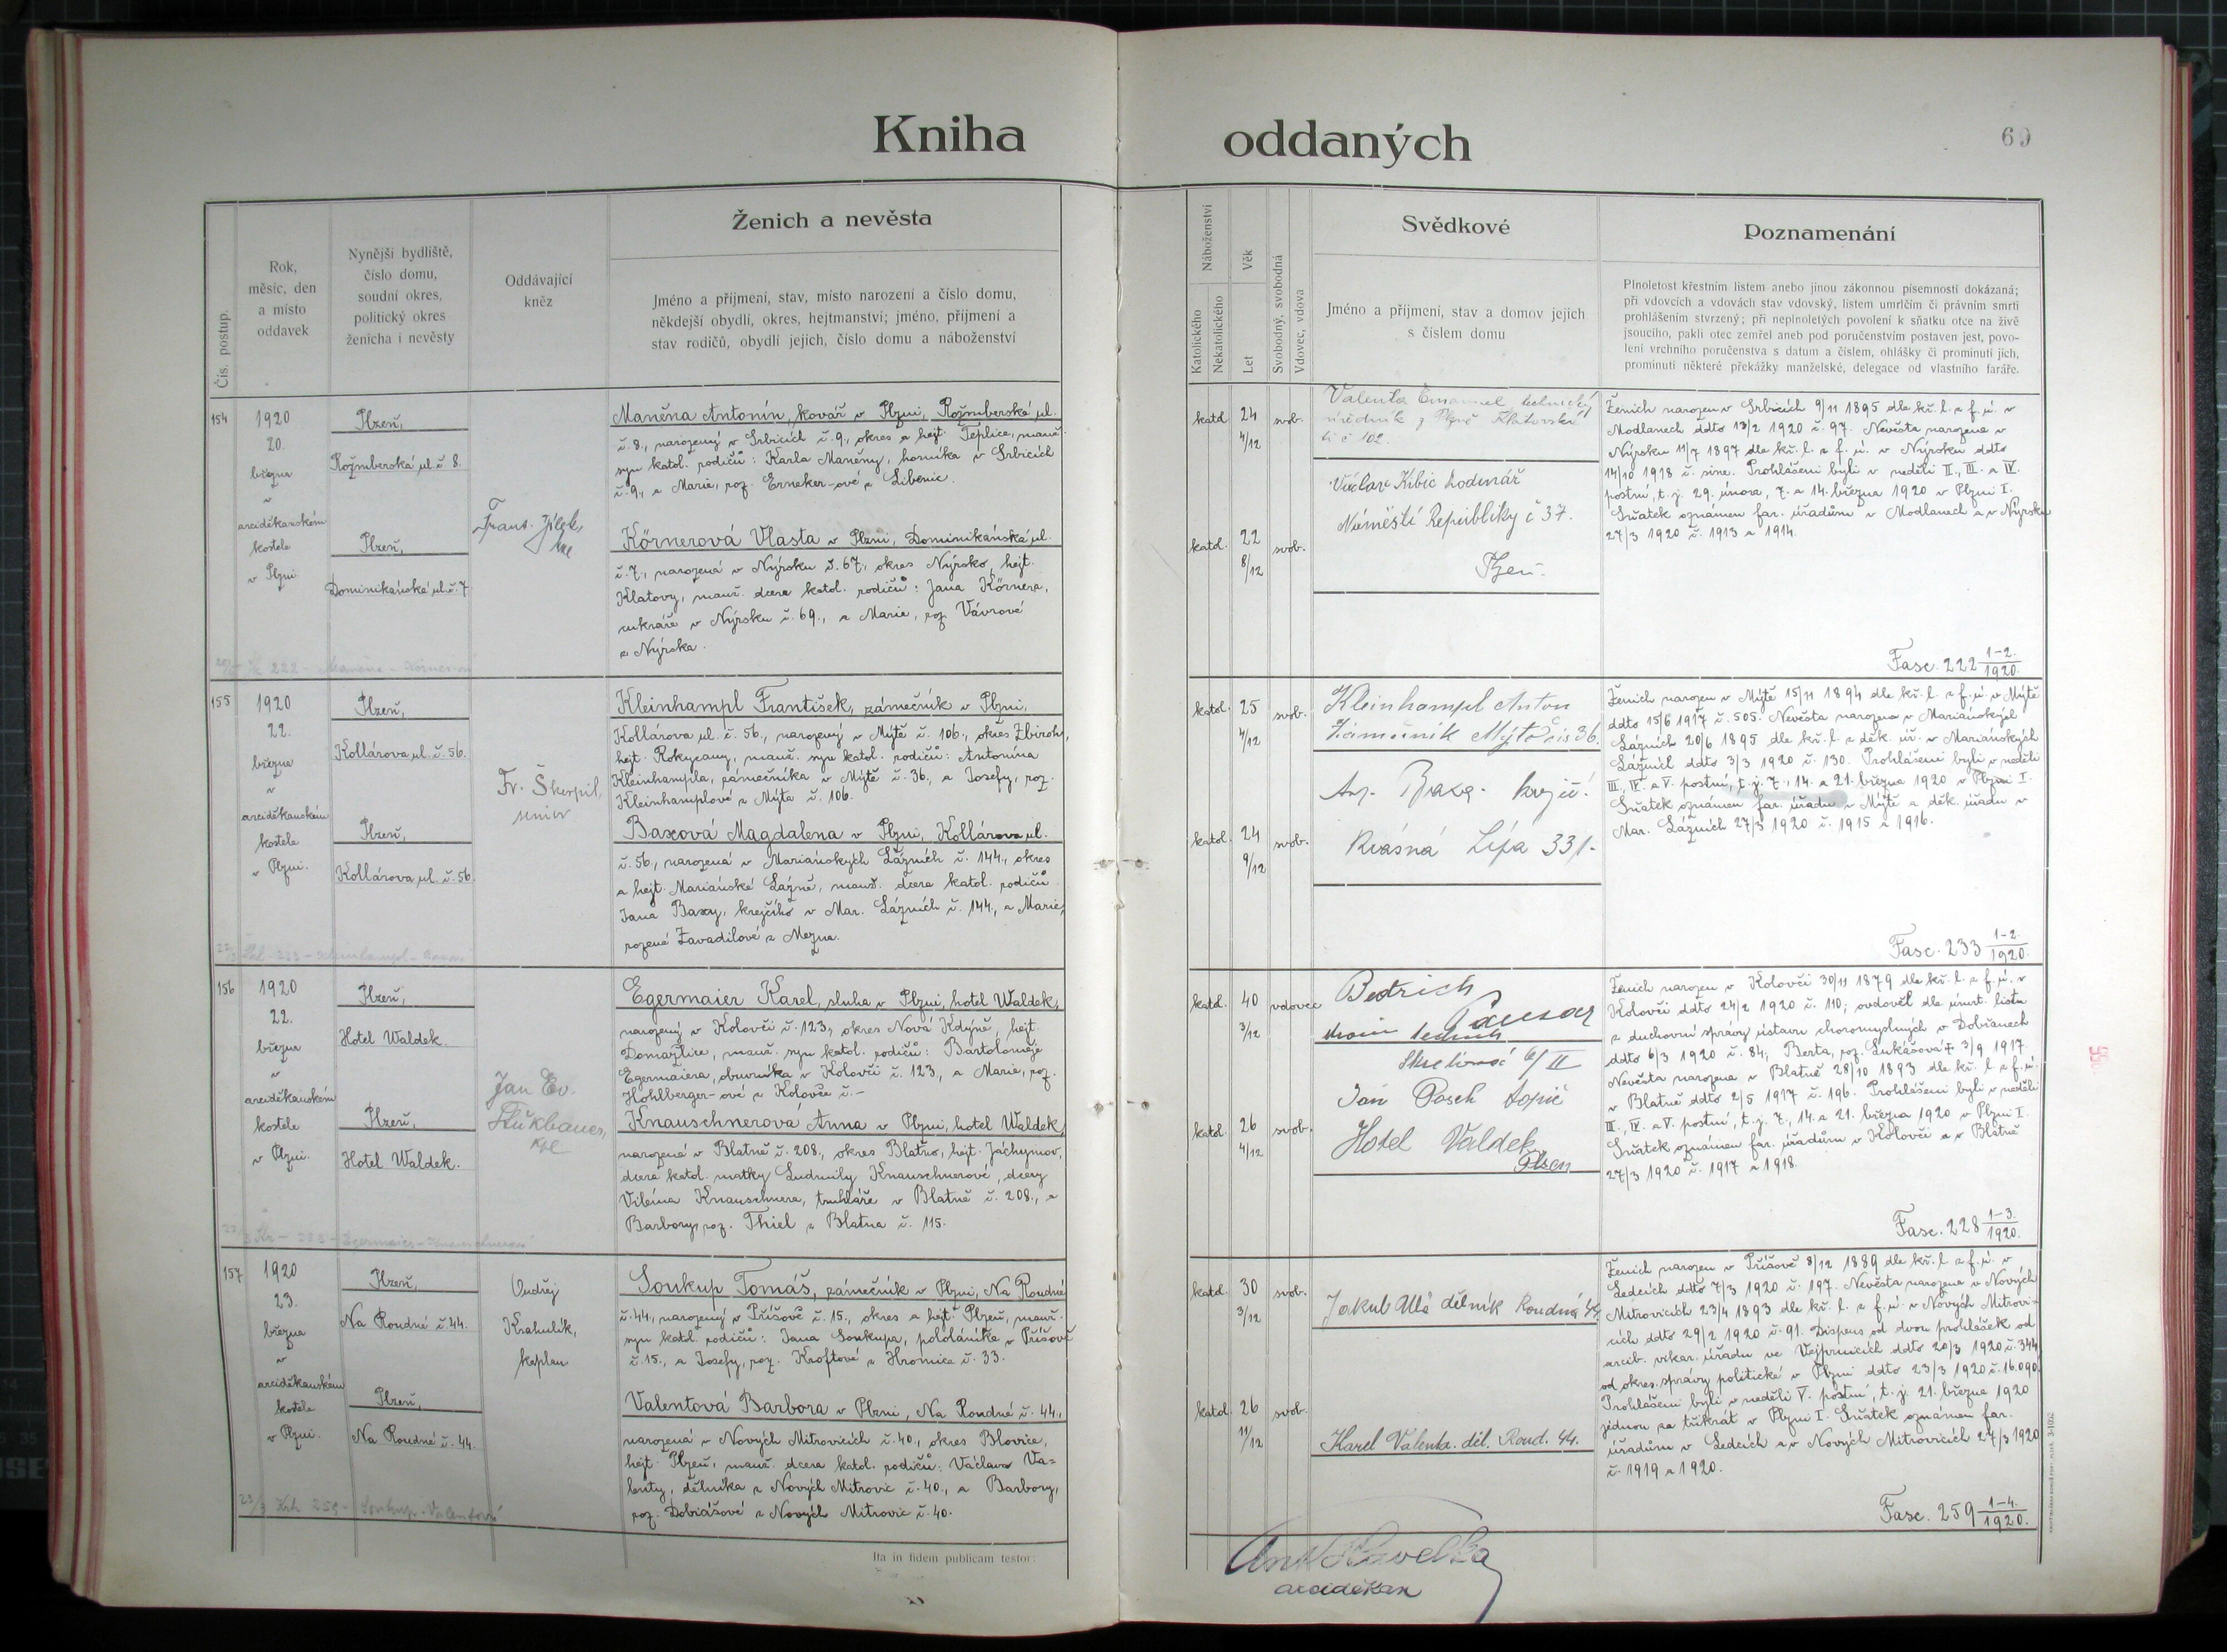 Kniha oddaných
69
Čís. postup.
Rok,
měsíc, den
a místo
oddavek
Nynější bydliště,
číslo domu,
soudní okres,
politický okres
ženicha i nevěsty
Oddávající
kněz
Ženich a nevěsta
Jméno a příjmení, stav, místo narození a číslo domu,
někdejší obydlí, okres, hejtmanství; jméno, příjmení a
stav rodičů, obydlí jejich, číslo domu a náboženství
Náboženství
Katolického
Nekatolického
Věk
Let
Svobodný, svobodná
Vdovec, vdova
Svědkové
Jméno a příjmení, stav a domov jejich
s číslem domu
Poznamenání
Plnoletost křestním listem anebo jinou zákonnou písemností dokázaná;
při vdovcích a vdovách stav vdovský, listem umrlčím či právním smrti
prohlášením stvrzený; při neplnoletých povolení k sňatku otce na živě
jsoucího, pakli otec zemřel aneb pod poručenstvím postaven jest, povo-
lení vrchního poručenstva s datum a číslem, ohlášky či prominutí jich,
prominutí některé překážky manželské, delegace od vlastního faráře.
154
1920
20.
března
v
arciděkanském
kostele
v Plzni.
Plzeň,
Rožmberská ul. č. 8.
Plzeň,
Dominikánská ul. č. 7
Frant. Jílek,
Maněna Antonín, kovář v Plzni, Rožmberská ul.
č. 8., narozený v Srbicích č. 9., okres a hejt. Teplice, manž.
syn katol. rodičů: Karla Maněny, horníka v Srbicích
č. 9., a Marie, roz. Erneker-ové z Libenic.
Körnerová Vlasta v Plzni, Dominikánská ul.
č. 7., narozená v Nýrsku č. 67., okres Nýrsko, hejt.
Klatovy, manž. dcera katol. rodičů: Jana Körnera,
cukráře v Nýrsku č. 69., a Marie, roz. Vávrové
z Nýrska.
katol. 24 4/12 svob.
katol. 22 8/12 svob.
Valenta Emanuel technický
úředník z Plzně Klatovská
tř č 102.
Václav Kibic hodinář
Náměstí Republiky č 37.
Plzeň.
Ženich narozen v Srbicích 9/11 1895 dle kř. l. z f. ú. v
Modlanech ddto 13/2 1920 č. 97. Nevěsta narozena v
Nýrsku 11/7 1897 dle kř. l. z f. ú. v Nýrsku ddto
14/10 1918 č. sine. Prohlášeni byli v neděli II., III. a IV.
postní, t. j. 29. února, 7. a 14. března 1920 v Plzni I.
Sňatek oznámen far. úřadům v Modlanech a v Nýrsku
27/3 1920 č. 1913 a 1914.
Fasc. 222 1-2./1920.
155
1920
22.
března
v
arciděkanském
kostele
v Plzni.
Plzeň,
Kollárova ul. č. 56.
Plzeň,
Kollárova ul. č. 56.
Fr. Škerpil,
senior
Kleinhampl František, zámečník v Plzni,
Kollárova ul. č. 56., narozený v Mýtě č. 106., okres Zbiroh,
hejt. Rokycany, manž. syn katol. rodičů: Antonína
Kleinhampla, zámečníka v Mýtě č. 36., a Josefy, roz.
Kleinhamplové z Mýta č. 106.
Baxová Magdalena v Plzni, Kollárova ul.
č. 56., narozená v Mariánských Lázních č. 144., okres
a hejt. Mariánské Lázně, manž. dcera katol. rodičů
Jana Baxy, krejčího v Mar. Lázních č. 144., a Marie,
rozené Zavadilové z Mezna.
katol. 25 4/12 svob.
katol. 24 9/12 svob.
Kleinhampl Anton
Zámečník Mýto čís 36.
Krásná Lípa 331.
Ženich narozen v Mýtě 15/11 1894 dle kř. l. z f. ú. v Mýtě
ddto 15/6 1917 č. 505. Nevěsta narozena v Mariánských
Lázních 20/6 1895 dle kř. l. z děk. úř. v Mariánských
Lázních ddto 3/3 1920 č. 130. Prohlášeni byli v neděli
III., IV. a V. postní, t. j. 7., 14. a 21. března 1920 v Plzni I.
Sňatek oznámen far. úřadu v Mýtě a děk. úřadu v
Mar. Lázních 27/3 1920 č. 1915 a 1916.
Fasc. 233 1-2./1920.
156
1920
22.
března
v
arciděkanském
kostele
v Plzni.
Plzeň,
Hotel Waldek.
Plzeň,
Hotel Waldek.
Jan Ev.
Egermaier Karel, sluha v Plzni, hotel Waldek,
narozený v Kolovči č. 123, okres Nová Kdyně, hejt.
Domažlice, manž. syn katol. rodičů: Bartoloměje
Egermaiera, obuvníka v Kolovči č. 123., a Marie, roz.
Hohlberger-ové z Kolovče č.-
Knauschnerová Anna v Plzni, hotel Waldek,
narozená v Blatně č. 208., okres Blatno, hejt. Jáchymov,
dcera katol. matky Ludmily Knauschnerové, dcery
Viléma Knauschnera, truhláře v Blatně č. 208., a
Barbory, roz. Thiel z Blatna č. 115.
katol. 40 3/12 vdovec
katol. 26 4/12 svob.
Bedrich
6/II
Jan Pasch topič
Hotel Valdek
Plsen
Ženich narozen v Kolovči 30/11 1879 dle kř. l. z f. ú. v
Kolovči ddto 24/2 1920 č. 110; ovdověl dle úmrt. listu
z duchovní správy ústavu choromyslných v Dobřanech
ddto 6/3 1920 č. 84, Berta, roz. Lukášová † 3/9 1917.
Nevěsta narozena v Blatně 28/10 1893 dle kř. l. z f. ú.
v Blatně ddto 2/5 1917 č. 196. Prohlášeni byli v neděli
III., IV. a V. postní, t. j. 7., 14. a 21. března 1920 v Plzni I.
Sňatek oznámen far. úřadům v Kolovči a v Blatně
27/3 1920 č. 1917 a 1918.
Fasc. 228 1-3./1920.
157
1920
23.
března
v
arciděkanském
kostele
v Plzni.
Plzeň,
Na Roudné č. 44.
Plzeň,
Na Roudné č. 44.
Ondřej
Krahulík,
kaplan
Soukup Tomáš, zámečník v Plzni, Na Roudné
č. 44., narozený v Příšově č. 15., okres a hejt. Plzeň, manž.
syn katol. rodičů: Jana Soukupa, pololáníka v Příšově
č. 15., a Josefy, roz. Kroftové z Hromnice č. 33.
Valentová Barbora v Plzni, Na Roudné č. 44.,
narozená v Nových Mitrovicích č. 40., okres Blovice,
hejt. Plzeň, manž. dcera katol. rodičů: Václava Va=
lenty, dělníka z Nových Mitrovic č. 40., a Barbory,
roz. Dobiášové z Nových Mitrovic č. 40.
23/3 Krh 259 - Soukup - Valentová
katol. 30 3/12 svob.
katol. 26 11/12 svob.
Jakub dělník Roudná 44
Karel Valenta. děl. Roud. 44.
Ženich narozen v Příšově 8/12 1889 dle kř. l. z f. ú. v
Ledcích ddto 7/3 1920 č. 197. Nevěsta narozena v Nových
Mitrovicích 23/4 1893 dle kř. l. z f. ú. v Nových Mitrovi-
cích ddto 29/2 1920 č. 91. Dispens od dvou prohlášek od
arcib. vikar. úřadu ve Vejprnicích ddto 20/3 1920 č. 344,
od okres. správy politické v Plzni ddto 23/3 1920 č. 16.090.
Prohlášeni byli v neděli V. postní, t. j. 21. března 1920
jednou za třikrát v Plzni I. Sňatek oznámen far.
úřadům v Ledcích a v Nových Mitrovicích 27/3 1920
č. 1919 a 1920.
Fasc. 259 1-4./1920.
Ita in fidem publicam testor:
Ant. Havelka
arciděkan